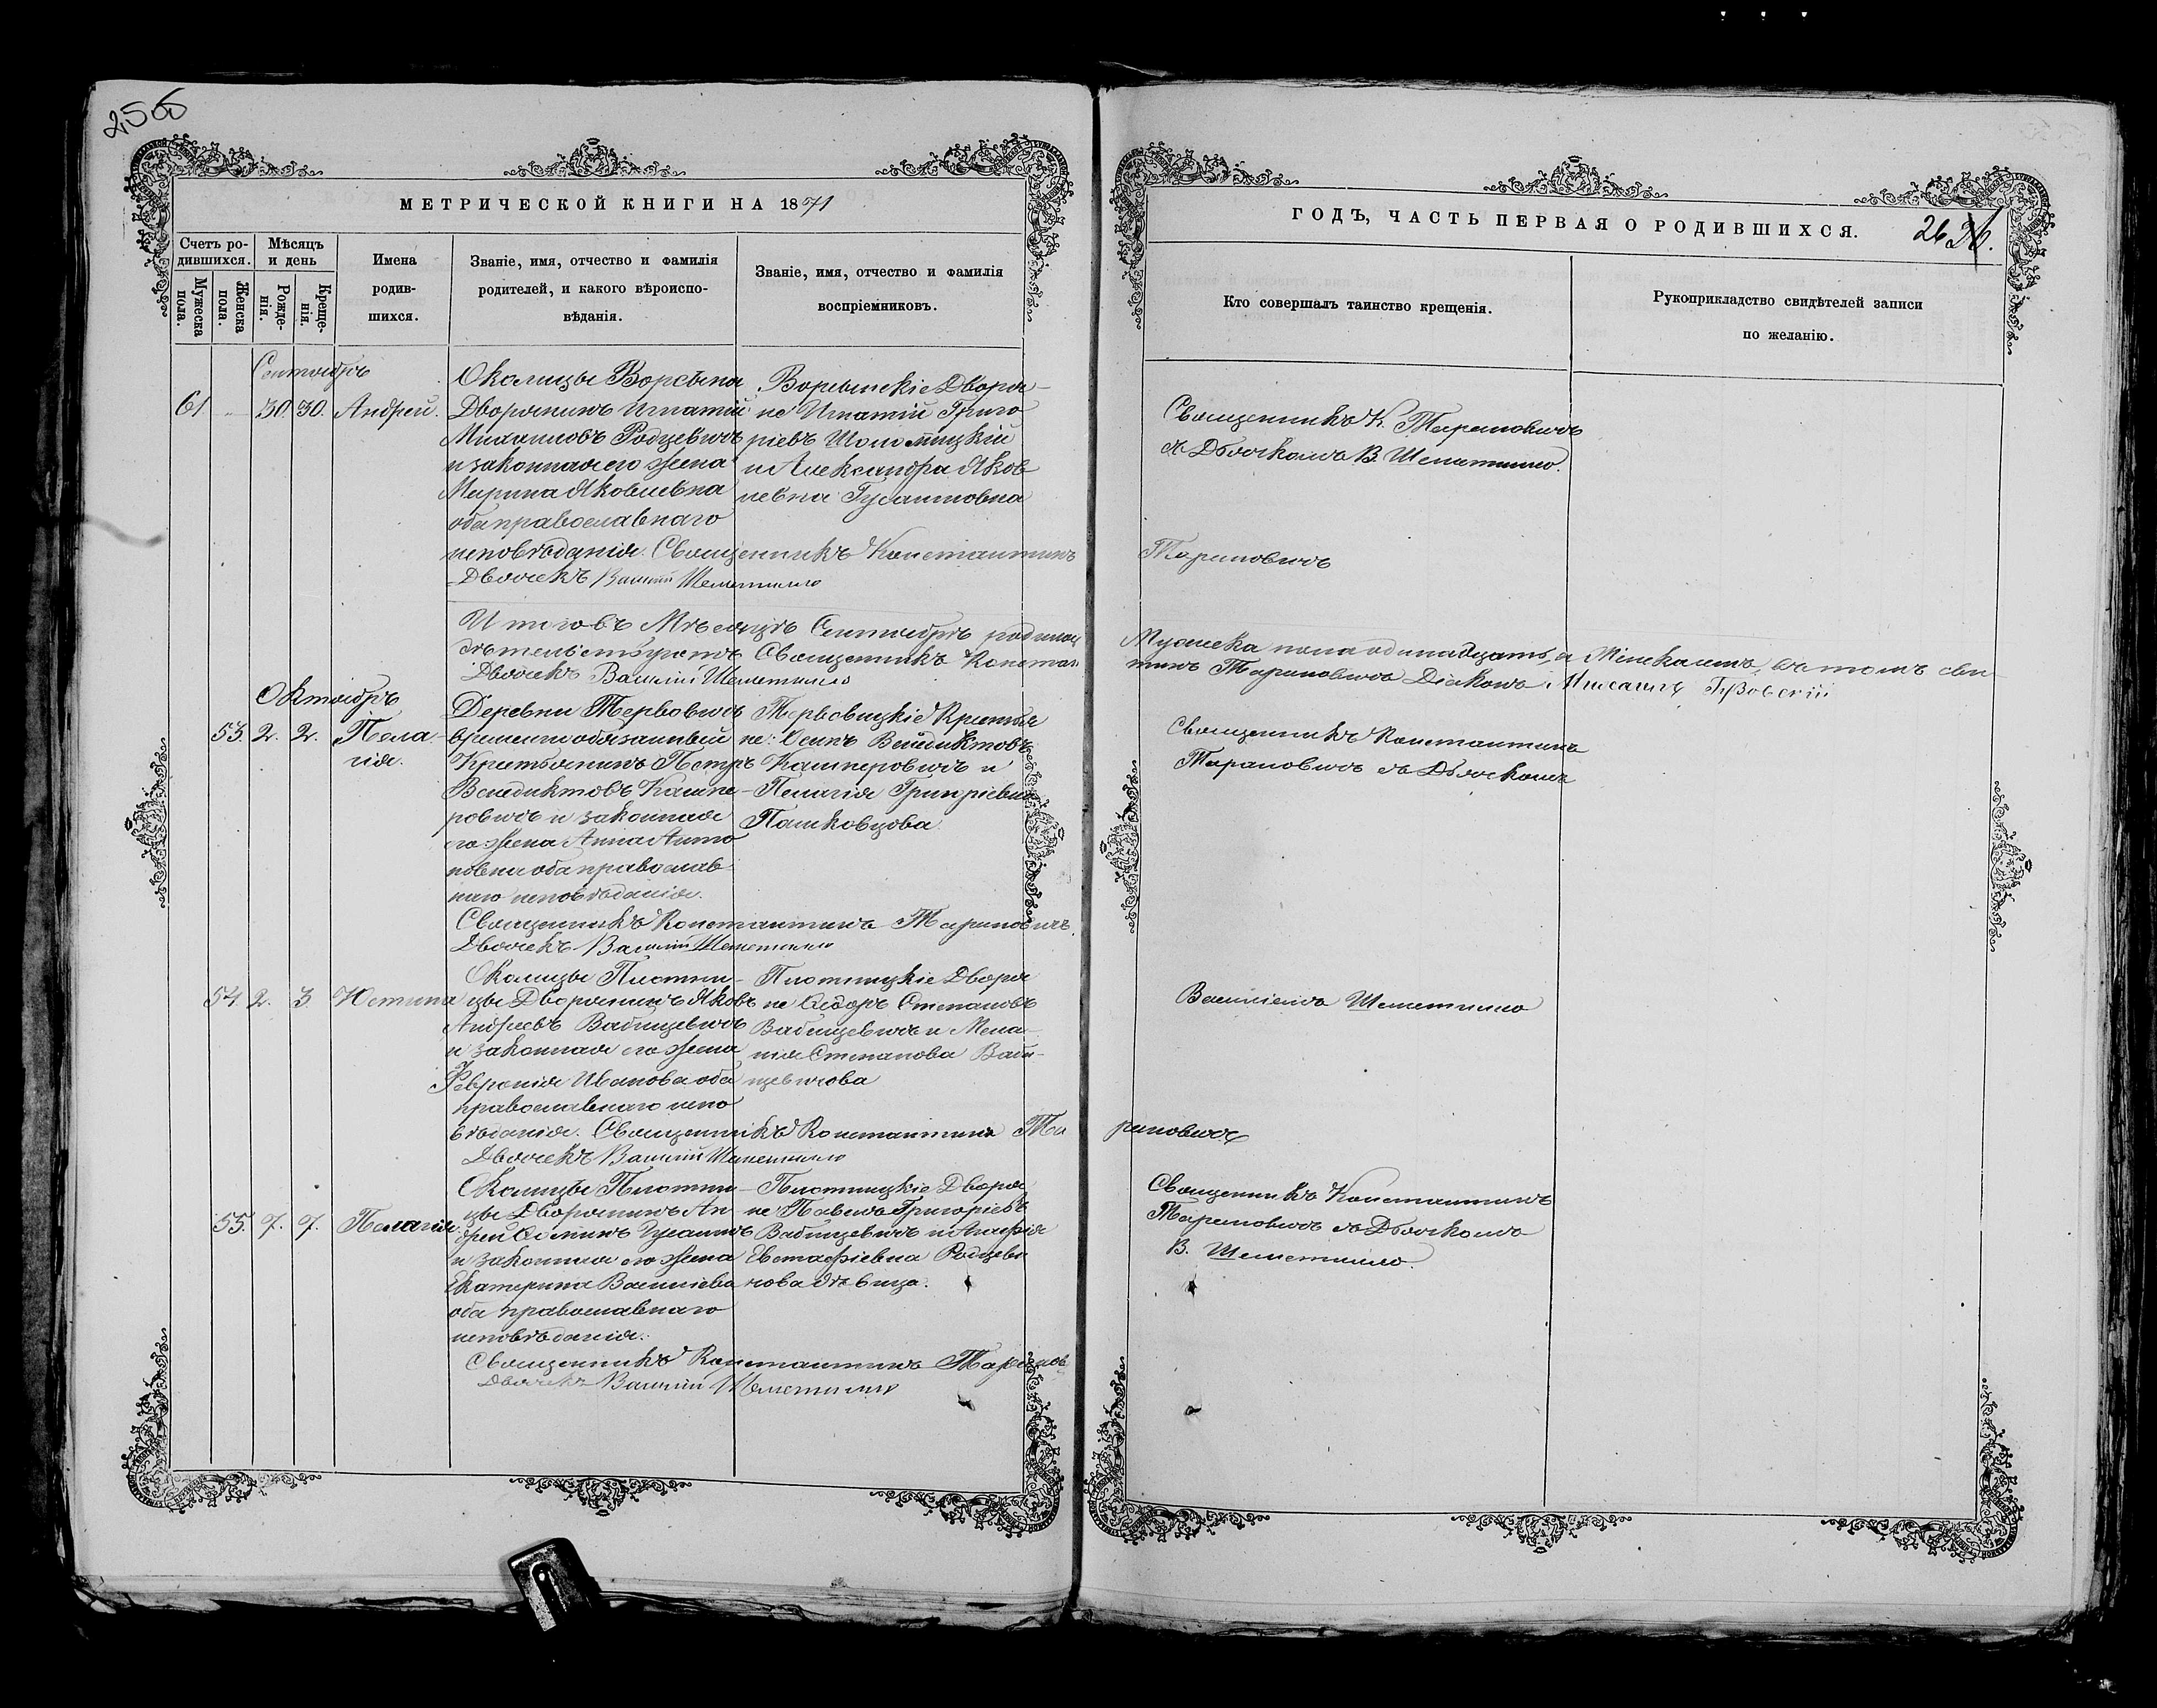 256
МЕТРИЧЕСКОЙ КНИГИ НА 1871
Счетъ ро-
дившихся.
Мѣсяцъ
и день
Имена
родив-
шихся.
Званіе, имя, отчество и фамилія
родителей, и какого вѣроиспо-
вѣданія.
Званіе, имя, отчество и фамилія
воспріемниковъ.
Мужеска
пола.
Женска
пола.
Рожде-
нія.
Креще-
нія.
Сентябрь
61
30. 30. Андрей.
Околицы Ворсына
Дворянинъ Игнатій
Михаиловъ Родцевичъ
и законная его жена
Марина Яковлевна
оба православнаго
исповѣданія. Священникъ Константинъ
Дьячекъ Василій Шеметилло
Ворсынскіе Дворя-
не Игнатій Григо
ріевъ Шоломицкій
и Александра Яков
левна
Итого въ Мѣсяцѣ Сентябрѣ
Священникъ Констан
Дьячекъ Василій Шеметилло
Октябрь
53. 2. 2. Пела-
гія.
Деревни Тервовичъ
временнообязанный
Крестьянинъ Петръ
Венедиктовъ Каспе-
ровичъ и законная
его жена Анна Анто
новна оба православ
наго исповѣданія.
Священникъ Константинъ Тарановичъ.
Дьячекъ Василій Шеметилло
Тервовицкіе Крестья
не: Венедиктовъ
Касперовичъ и
Пелагія Григріевна
Пашковцова
54. 2. 3 Юстина
Околицы Плотни-
цы Дворянинъ Яковъ
Андреевъ Вабищевичъ
и законная его жена
Феврония Иванова оба
православнаго испо
вѣданія. Священникъ Константинъ Та
Дьячекъ Василій Шеметилло
Плотницкіе Дворя
не Ѳеодоръ Степановъ
Вабищевичъ и Мела-
нія Степанова Ваби-
щевичова
55. 7. 7. Пелагія.
Околицы Плотни-
цы Дворянинъ Ан
дрей
и законная его жена
Екатерина Васильева
оба православнаго
исповѣданія.
Священникъ Константинъ Таранов
Дьячекъ Василій Шеметилло
Плотницкіе Дворя
не Павелъ Григоріевъ
Вабищевичъ и Агафія
Евстафіевна Родцеви
чова дѣвица.
ГОДЪ, ЧАСТЬ ПЕРВАЯ О РОДИВШИХСЯ.
26
Кто совершалъ таинство крещенія.
Рукоприкладство свидѣтелей записи
по желанію.
Священникъ К. Тарановичъ
съ Дьячкомъ В. Шеметилло.
Тарановичъ
Мужеска пола одинадцать, а Женска
тинъ Тарановичъ Діаконъ
Священникъ Константинъ
Тарановичъ съ Дьячкомъ
Василіемъ Шеметилло
рановичъ
Священникъ Константинъ
Тарановичъ съ Дьячкомъ
В. Шеметилло.